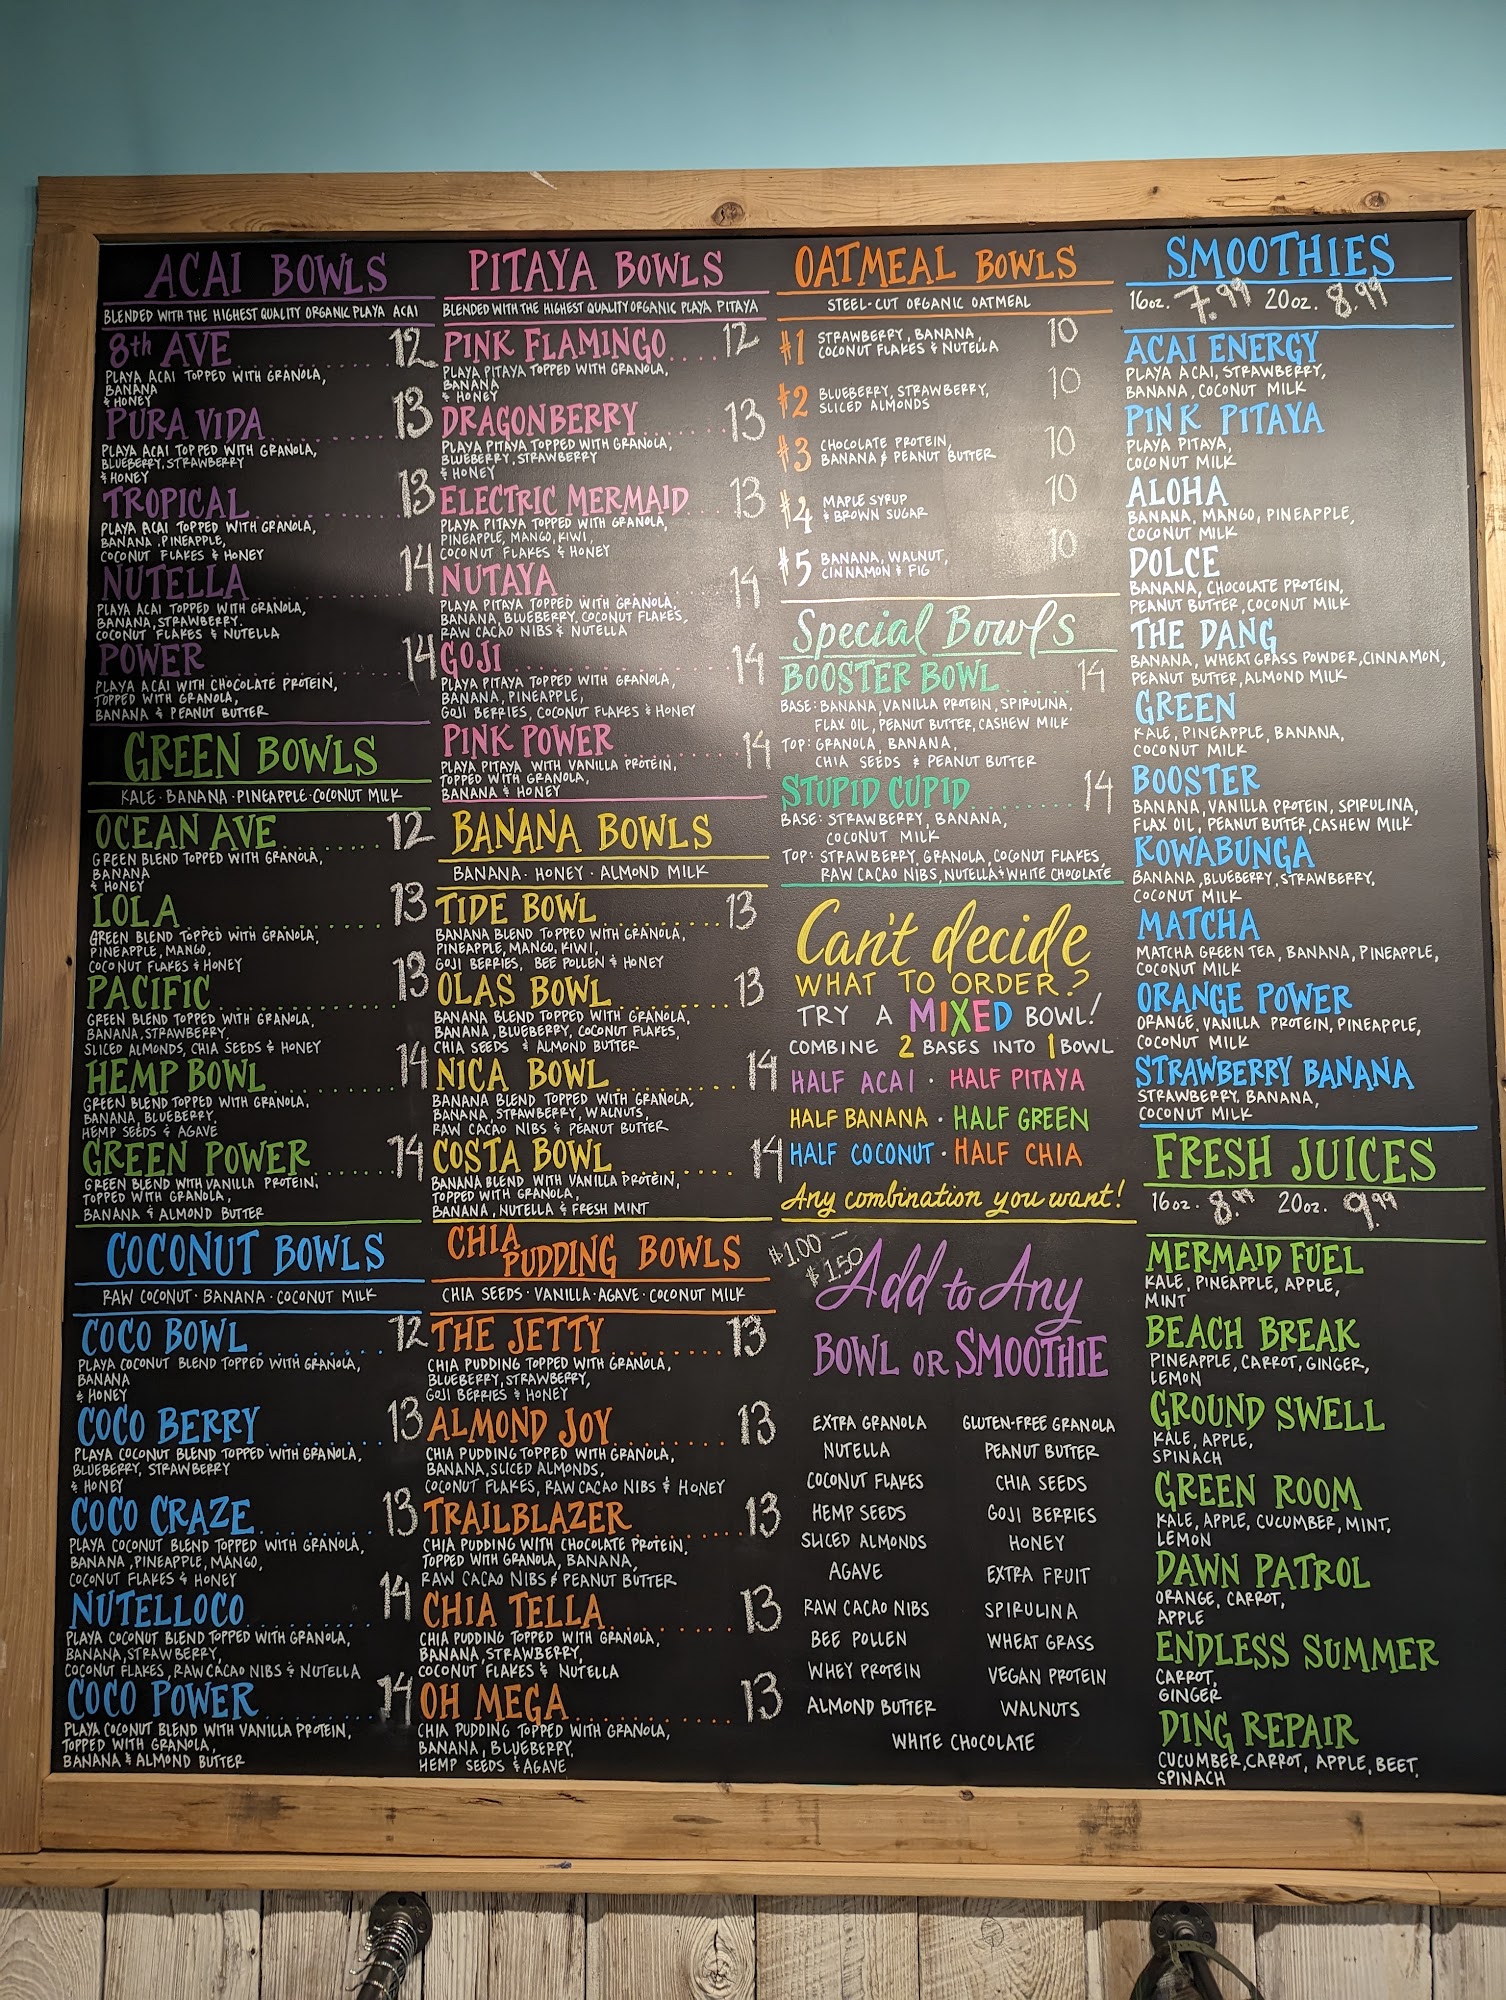 ACAI BOWLS
BLENDED WITH THE HIGHEST QUALITY ORGANIC PLAYA ACAI
8th AVE 12
PLAYA ACAI TOPPED WITH GRANOLA,
BANANA
& HONEY
PURA VIDA 13
PLAYA ACAI TOPPED WITH GRANOLA,
BLUEBERRY, STRAWBERRY
& HONEY
TROPICAL 13
PLAYA ACAI TOPPED WITH GRANOLA,
BANANA, PINEAPPLE,
COCONUT FLAKES & HONEY
NUTELLA 14
PLAYA ACAI TOPPED WITH GRANOLA,
BANANA, STRAWBERRY,
COCONUT FLAKES & NUTELLA
POWER 14
PLAYA ACAI WITH CHOCOLATE PROTEIN,
TOPPED WITH GRANOLA,
BANANA & PEANUT BUTTER
GREEN BOWLS
KALE · BANANA · PINEAPPLE · COCONUT MILK
OCEAN AVE 12
GREEN BLEND TOPPED WITH GRANOLA,
BANANA
& HONEY
LOLA 13
GREEN BLEND TOPPED WITH GRANOLA,
PINEAPPLE, MANGO,
COCONUT FLAKES & HONEY
PACIFIC 13
GREEN BLEND TOPPED WITH GRANOLA,
BANANA, STRAWBERRY,
SLICED ALMONDS, CHIA SEEDS & HONEY
HEMP BOWL 14
GREEN BLEND TOPPED WITH GRANOLA,
BANANA, BLUEBERRY,
HEMP SEEDS & AGAVE
GREEN POWER 14
GREEN BLEND WITH VANILLA PROTEIN,
TOPPED WITH GRANOLA,
BANANA & ALMOND BUTTER
COCONUT BOWLS
RAW COCONUT · BANANA · COCONUT MILK
COCO BOWL 12
PLAYA COCONUT BLEND TOPPED WITH GRANOLA,
BANANA
& HONEY
COCO BERRY 13
PLAYA COCONUT BLEND TOPPED WITH GRANOLA,
BLUEBERRY, STRAWBERRY
& HONEY
COCO CRAZE 13
PLAYA COCONUT BLEND TOPPED WITH GRANOLA,
BANANA, PINEAPPLE, MANGO,
COCONUT FLAKES & HONEY
NUTELLOCO 14
PLAYA COCONUT BLEND TOPPED WITH GRANOLA,
BANANA, STRAWBERRY,
COCONUT FLAKES, RAW CACAO NIBS & NUTELLA
COCO POWER 14
PLAYA COCONUT BLEND WITH VANILLA PROTEIN,
TOPPED WITH GRANOLA,
BANANA & ALMOND BUTTER
PITAYA BOWLS
BLENDED WITH THE HIGHEST QUALITY ORGANIC PLAYA PITAYA
PINK FLAMINGO 12
PLAYA PITAYA TOPPED WITH GRANOLA,
BANANA
& HONEY
DRAGONBERRY 13
PLAYA PITAYA TOPPED WITH GRANOLA,
BLUEBERRY, STRAWBERRY
& HONEY
ELECTRIC MERMAID 13
PLAYA PITAYA TOPPED WITH GRANOLA,
PINEAPPLE, MANGO, KIWI,
COCONUT FLAKES & HONEY
NUTAYA 14
PLAYA PITAYA TOPPED WITH GRANOLA,
BANANA, BLUEBERRY, COCONUT FLAKES,
RAW CACAO NIBS & NUTELLA
GOJI 14
PLAYA PITAYA TOPPED WITH GRANOLA,
BANANA, PINEAPPLE,
GOJI BERRIES, COCONUT FLAKES & HONEY
PINK POWER 14
PLAYA PITAYA WITH VANILLA PROTEIN,
TOPPED WITH GRANOLA,
BANANA & HONEY
BANANA BOWLS
BANANA · HONEY · ALMOND MILK
TIDE BOWL 13
BANANA BLEND TOPPED WITH GRANOLA,
PINEAPPLE, MANGO, KIWI,
GOJI BERRIES, BEE POLLEN & HONEY
OLAS BOWL 13
BANANA BLEND TOPPED WITH GRANOLA,
BANANA, BLUEBERRY, COCONUT FLAKES,
CHIA SEEDS & ALMOND BUTTER
NICA BOWL 14
BANANA BLEND TOPPED WITH GRANOLA,
BANANA, STRAWBERRY, WALNUTS,
RAW CACAO NIBS & PEANUT BUTTER
COSTA BOWL 14
BANANA BLEND WITH VANILLA PROTEIN,
TOPPED WITH GRANOLA,
BANANA, NUTELLA & FRESH MINT
CHIA PUDDING BOWLS
CHIA SEEDS · VANILLA · AGAVE · COCONUT MILK
THE JETTY 13
CHIA PUDDING TOPPED WITH GRANOLA,
BLUEBERRY, STRAWBERRY,
GOJI BERRIES & HONEY
ALMOND JOY 13
CHIA PUDDING TOPPED WITH GRANOLA,
BANANA, SLICED ALMONDS,
COCONUT FLAKES, RAW CACAO NIBS & HONEY
TRAILBLAZER 13
CHIA PUDDING WITH CHOCOLATE PROTEIN,
TOPPED WITH GRANOLA, BANANA,
RAW CACAO NIBS & PEANUT BUTTER
CHIA TELLA 13
CHIA PUDDING TOPPED WITH GRANOLA,
BANANA, STRAWBERRY,
COCONUT FLAKES & NUTELLA
OH MEGA 13
CHIA PUDDING TOPPED WITH GRANOLA,
BANANA, BLUEBERRY,
HEMP SEEDS & AGAVE
OATMEAL BOWLS
STEEL-CUT ORGANIC OATMEAL
#1 STRAWBERRY, BANANA, 10
COCONUT FLAKES & NUTELLA
#2 BLUEBERRY, STRAWBERRY, 10
SLICED ALMONDS
#3 CHOCOLATE PROTEIN, 10
BANANA & PEANUT BUTTER
#4 MAPLE SYRUP 10
& BROWN SUGAR
#5 BANANA, WALNUT, 10
CINNAMON & FIG
Special Bowls
BOOSTER BOWL 14
BASE: BANANA, VANILLA PROTEIN, SPIRULINA,
FLAX OIL, PEANUT BUTTER, CASHEW MILK
TOP: GRANOLA, BANANA,
CHIA SEEDS & PEANUT BUTTER
STUPID CUPID 14
BASE: STRAWBERRY, BANANA,
COCONUT MILK
TOP: STRAWBERRY, GRANOLA, COCONUT FLAKES,
RAW CACAO NIBS, NUTELLA & WHITE CHOCOLATE
Can't decide
WHAT TO ORDER?
TRY A MIXED BOWL!
COMBINE 2 BASES INTO 1 BOWL
HALF ACAI · HALF PITAYA
HALF BANANA · HALF GREEN
HALF COCONUT · HALF CHIA
Any combination you want!
$1.00 –
$1.50
Add to Any
BOWL OR SMOOTHIE
EXTRA GRANOLA GLUTEN-FREE GRANOLA
NUTELLA PEANUT BUTTER
COCONUT FLAKES CHIA SEEDS
HEMP SEEDS GOJI BERRIES
SLICED ALMONDS HONEY
AGAVE EXTRA FRUIT
RAW CACAO NIBS SPIRULINA
BEE POLLEN WHEAT GRASS
WHEY PROTEIN VEGAN PROTEIN
ALMOND BUTTER WALNUTS
WHITE CHOCOLATE
SMOOTHIES
16oz. 7.99 20oz. 8.99
ACAI ENERGY
PLAYA ACAI, STRAWBERRY,
BANANA, COCONUT MILK
PINK PITAYA
PLAYA PITAYA,
COCONUT MILK
ALOHA
BANANA, MANGO, PINEAPPLE,
COCONUT MILK
DOLCE
BANANA, CHOCOLATE PROTEIN,
PEANUT BUTTER, COCONUT MILK
THE DANG
BANANA, WHEAT GRASS POWDER, CINNAMON,
PEANUT BUTTER, ALMOND MILK
GREEN
KALE, PINEAPPLE, BANANA,
COCONUT MILK
BOOSTER
BANANA, VANILLA PROTEIN, SPIRULINA,
FLAX OIL, PEANUT BUTTER, CASHEW MILK
KOWABUNGA
BANANA, BLUEBERRY, STRAWBERRY,
COCONUT MILK
MATCHA
MATCHA GREEN TEA, BANANA, PINEAPPLE,
COCONUT MILK
ORANGE POWER
ORANGE, VANILLA PROTEIN, PINEAPPLE,
COCONUT MILK
STRAWBERRY BANANA
STRAWBERRY, BANANA,
COCONUT MILK
FRESH JUICES
16oz. 8.99 20oz. 9.99
MERMAID FUEL
KALE, PINEAPPLE, APPLE,
MINT
BEACH BREAK
PINEAPPLE, CARROT, GINGER,
LEMON
GROUND SWELL
KALE, APPLE,
SPINACH
GREEN ROOM
KALE, APPLE, CUCUMBER, MINT,
LEMON
DAWN PATROL
ORANGE, CARROT,
APPLE
ENDLESS SUMMER
CARROT,
GINGER
DING REPAIR
CUCUMBER, CARROT, APPLE, BEET,
SPINACH